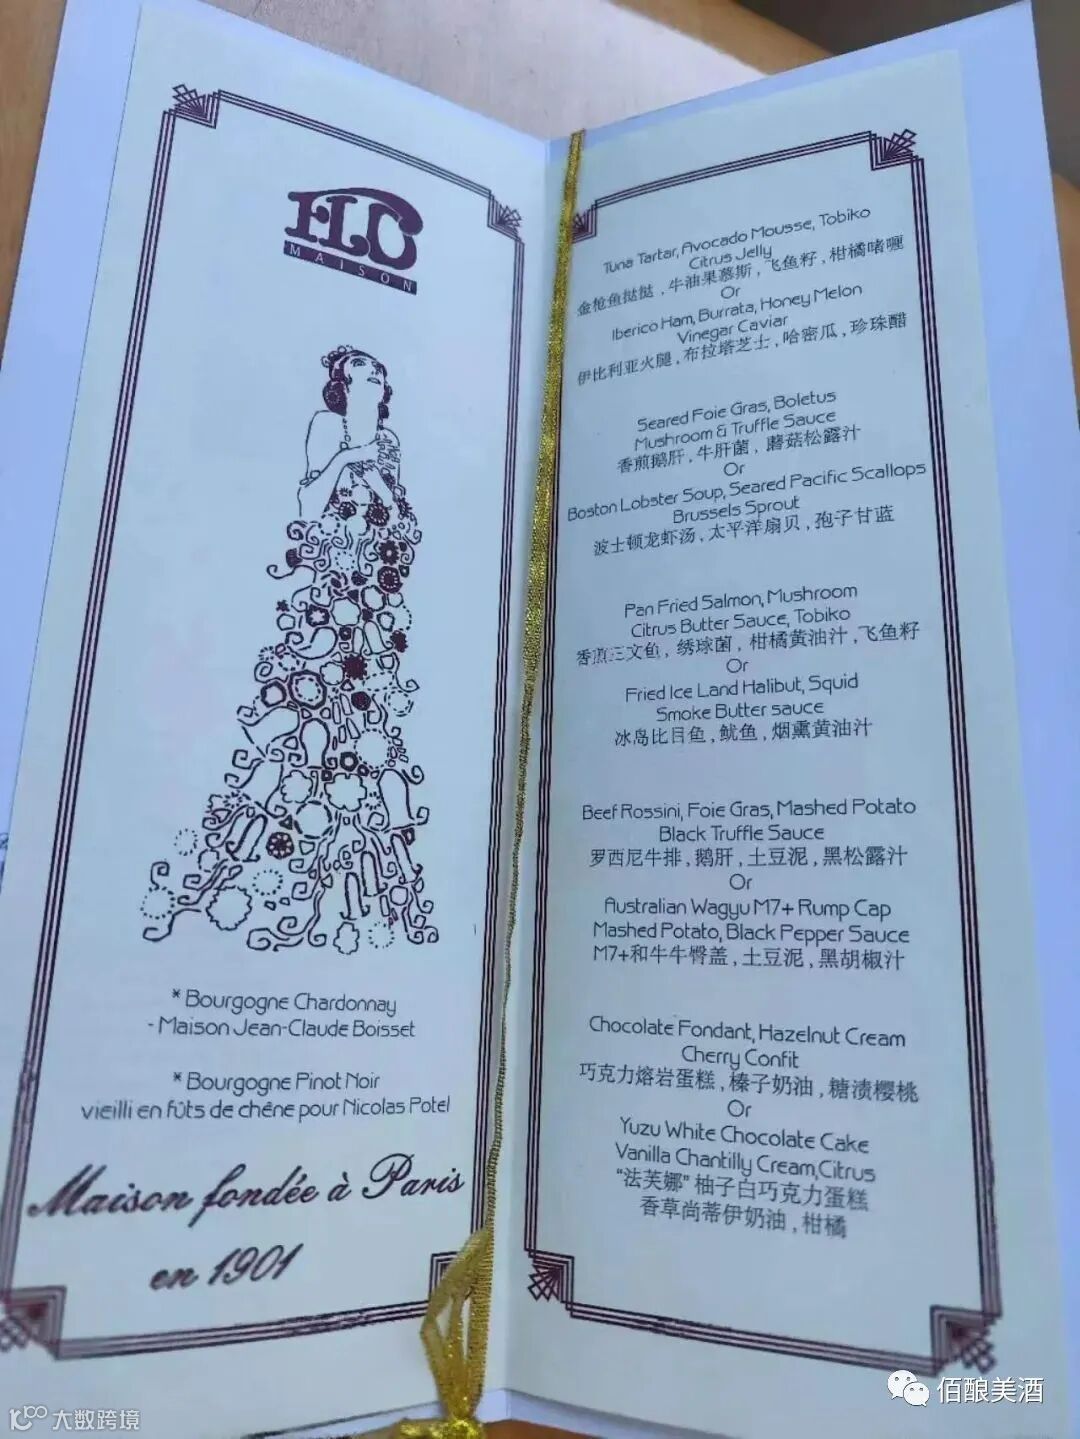 FLO
MAISON
* Bourgogne Chardonnay
- Maison Jean-Claude Boisset
* Bourgogne Pinot Noir
vieilli en fûts de chêne pour Nicolas Potel
Maison fondée à Paris
en 1901
Tuna Tartar, Avocado Mousse, Tobiko
Citrus Jelly
金枪鱼挞挞,牛油果慕斯,飞鱼籽,柑橘啫喱
Or
Iberico Ham, Burrata, Honey Melon
Vinegar Caviar
伊比利亚火腿,布拉塔芝士,哈密瓜,珍珠醋
Seared Foie Gras, Boletus
Mushroom & Truffle Sauce
香煎鹅肝,牛肝菌,蘑菇松露汁
Or
Boston Lobster Soup, Seared Pacific Scallops
Brussels Sprout
波士顿龙虾汤,太平洋扇贝,孢子甘蓝
Pan Fried Salmon, Mushroom
Citrus Butter Sauce, Tobiko
香煎三文鱼,绣球菌,柑橘黄油汁,飞鱼籽
Or
Fried Ice Land Halibut, Squid
Smoke Butter sauce
冰岛比目鱼,鱿鱼,烟熏黄油汁
Beef Rossini, Foie Gras, Mashed Potato
Black Truffle Sauce
罗西尼牛排,鹅肝,土豆泥,黑松露汁
Or
Australian Wagyu M7+ Rump Cap
Mashed Potato, Black Pepper Sauce
M7+和牛牛臀盖,土豆泥,黑胡椒汁
Chocolate Fondant, Hazelnut Cream
Cherry Confit
巧克力熔岩蛋糕,榛子奶油,糖渍樱桃
Or
Yuzu White Chocolate Cake
Vanilla Chantilly Cream,Citrus
"法芙娜"柚子白巧克力蛋糕
香草尚蒂伊奶油,柑橘
佰酿美酒
大数跨境